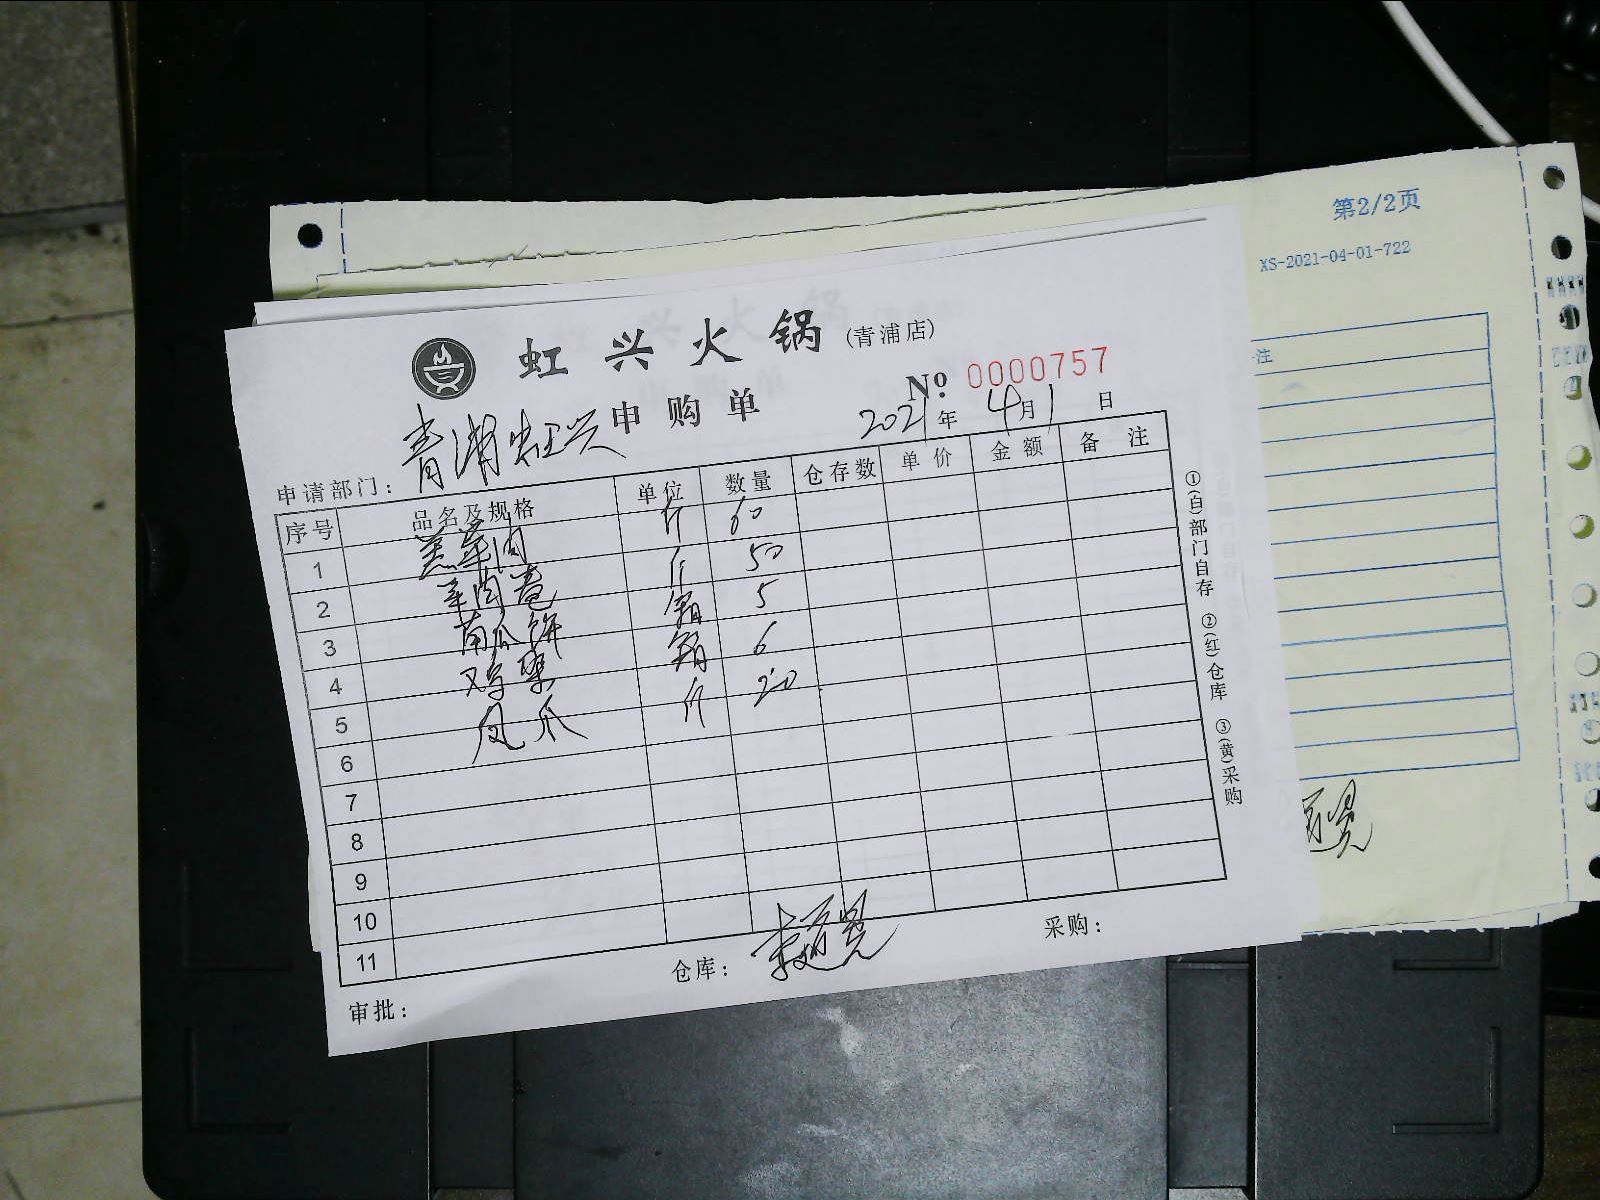 第2/2页
XS-2021-04-01-722
注
虹兴火锅(青浦店)
申购单
№ 0000757
2021年4月1日
申请部门: 青浦虹兴
序号 品名及规格 单位 数量 仓存数 单价 金额 备注
1 羔羊肉 斤 60
2 羊肉卷 斤 50
3 南瓜饼 箱 5
4 鸡柳 箱 6
5 凤爪 斤 20
6
7
8
9
10
11
审批: 仓库: 采购:
①(白)部门自存 ②(红)仓库 ③(黄)采购